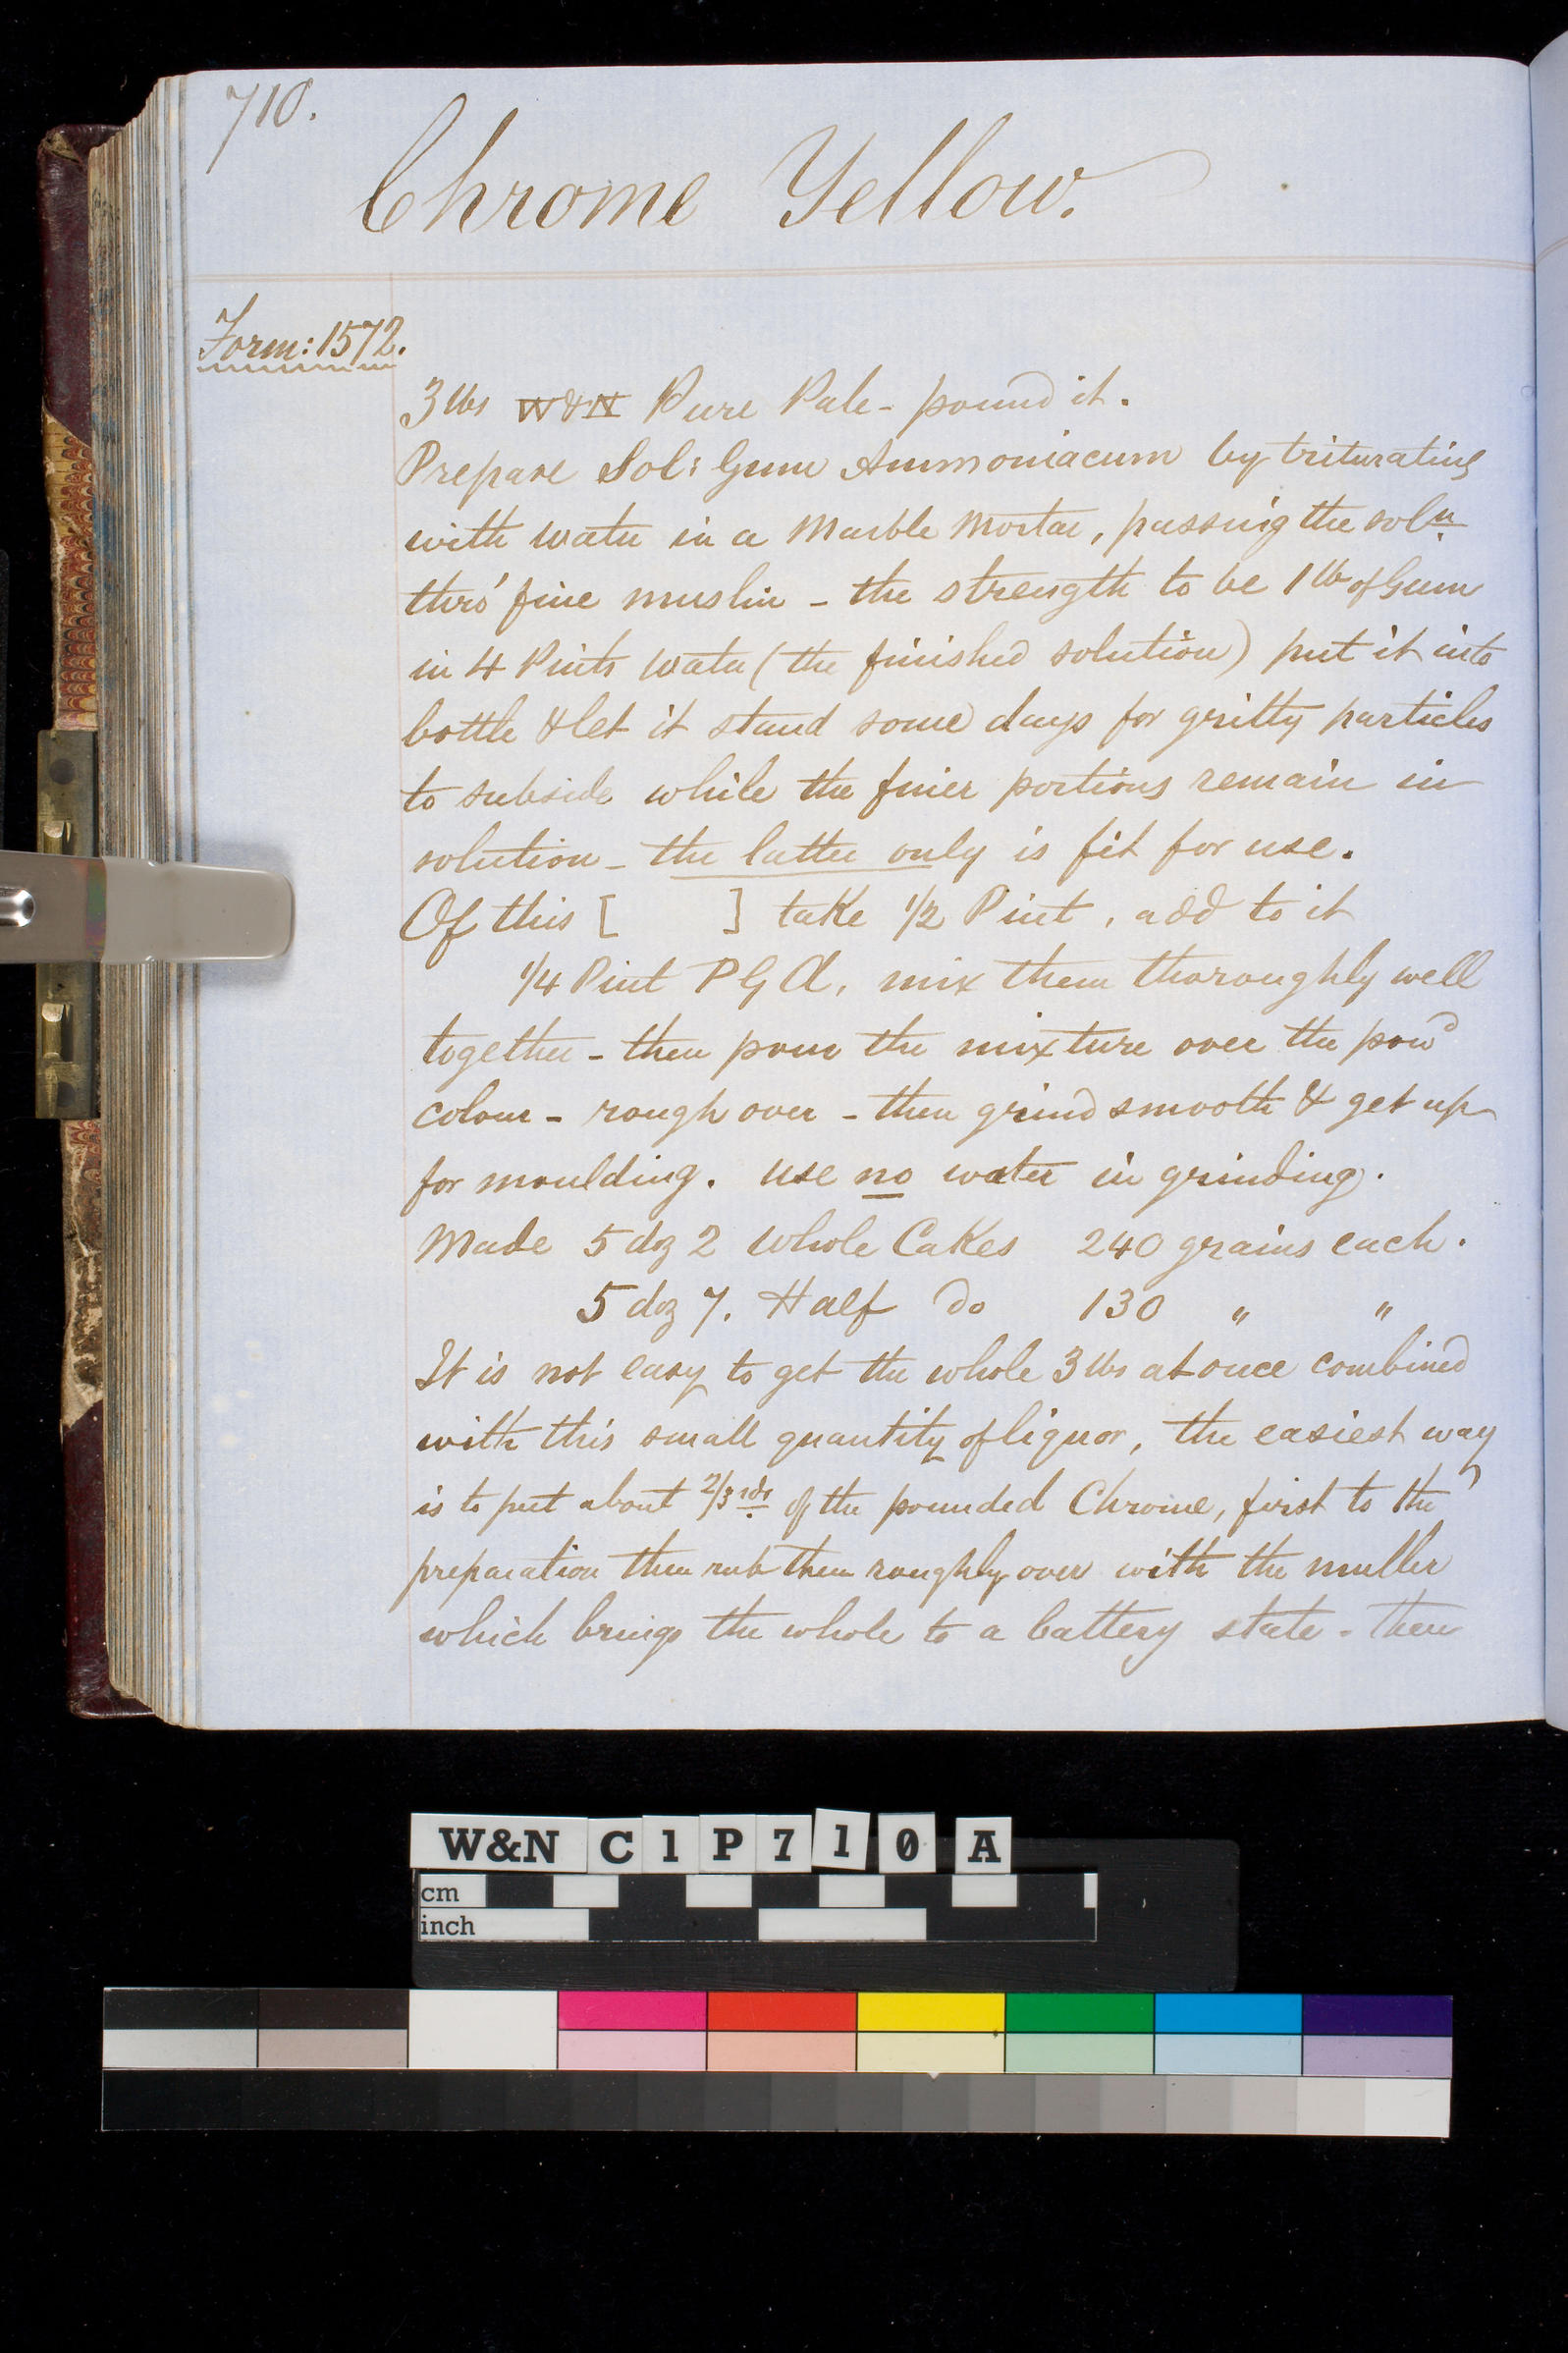 710.
Chrome Yellow.
Form: 1572.
3 lbs W&N Pure Pale - pound it.
Prepare Sol: Gum Ammoniacum by triturating
with water in a Marble Mortar, passing the soln.
thro' fine muslin - the strength to be 1 lb of Gum
in 4 Pints water (the finished solution) put it into
bottle & let it stand some days for gritty particles
to subside while the finer portions remain in
solution - the latter only is fit for use.
Of this [ ] take 1/2 Pint, add to it
1/4 Pint P G A, mix them thoroughly well
together - then pour the mixture over the powd
colour - rough over - then grind smooth & get up
for moulding. use no water in grinding.
Made 5 doz 2 Whole Cakes 240 grains each.
5 doz 7. Half do 130 " "
It is not easy to get the whole 3 lbs at once combined
with this small quantity of liquor, the easiest way
is to put about 2/3rds of the pounded Chrome, first to the
preparation then rub them roughly over with the muller
which brings the whole to a battery state - then
W&N C1P710A
cm
inch